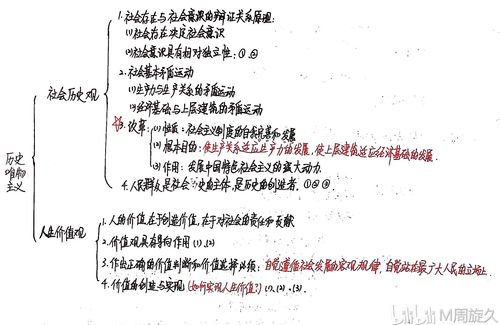 历史唯物主义
社会历史观
1.社会存在与社会意识的辩证关系原理:
(1)社会存在决定社会意识
(2)社会意识具有相对独立性:①.②
2.社会基本矛盾运动
(1)生产力与生产关系的矛盾运动
(2)经济基础与上层建筑的矛盾运动
3.改革:(1)性质:社会主义制度的自我完善和发展
(2)根本目的:使生产关系适应生产力的发展,使上层建筑适应经济基础的发展.
(3)作用:发展中国特色社会主义的强大动力.
4.人民群众是社会历史的主体,是历史的创造者.①②③
人生价值观
1.人的价值,在于创造价值,在于对社会的责任和贡献
2.价值观具有导向作用(1).(2)
3.作出正确的价值判断和价值选择必须:自觉遵循社会发展的客观规律,自觉站在最广大人民的立场上.
4.价值的创造与实现(如何实现人生价值?)(1).(2).(3).
M周旋久